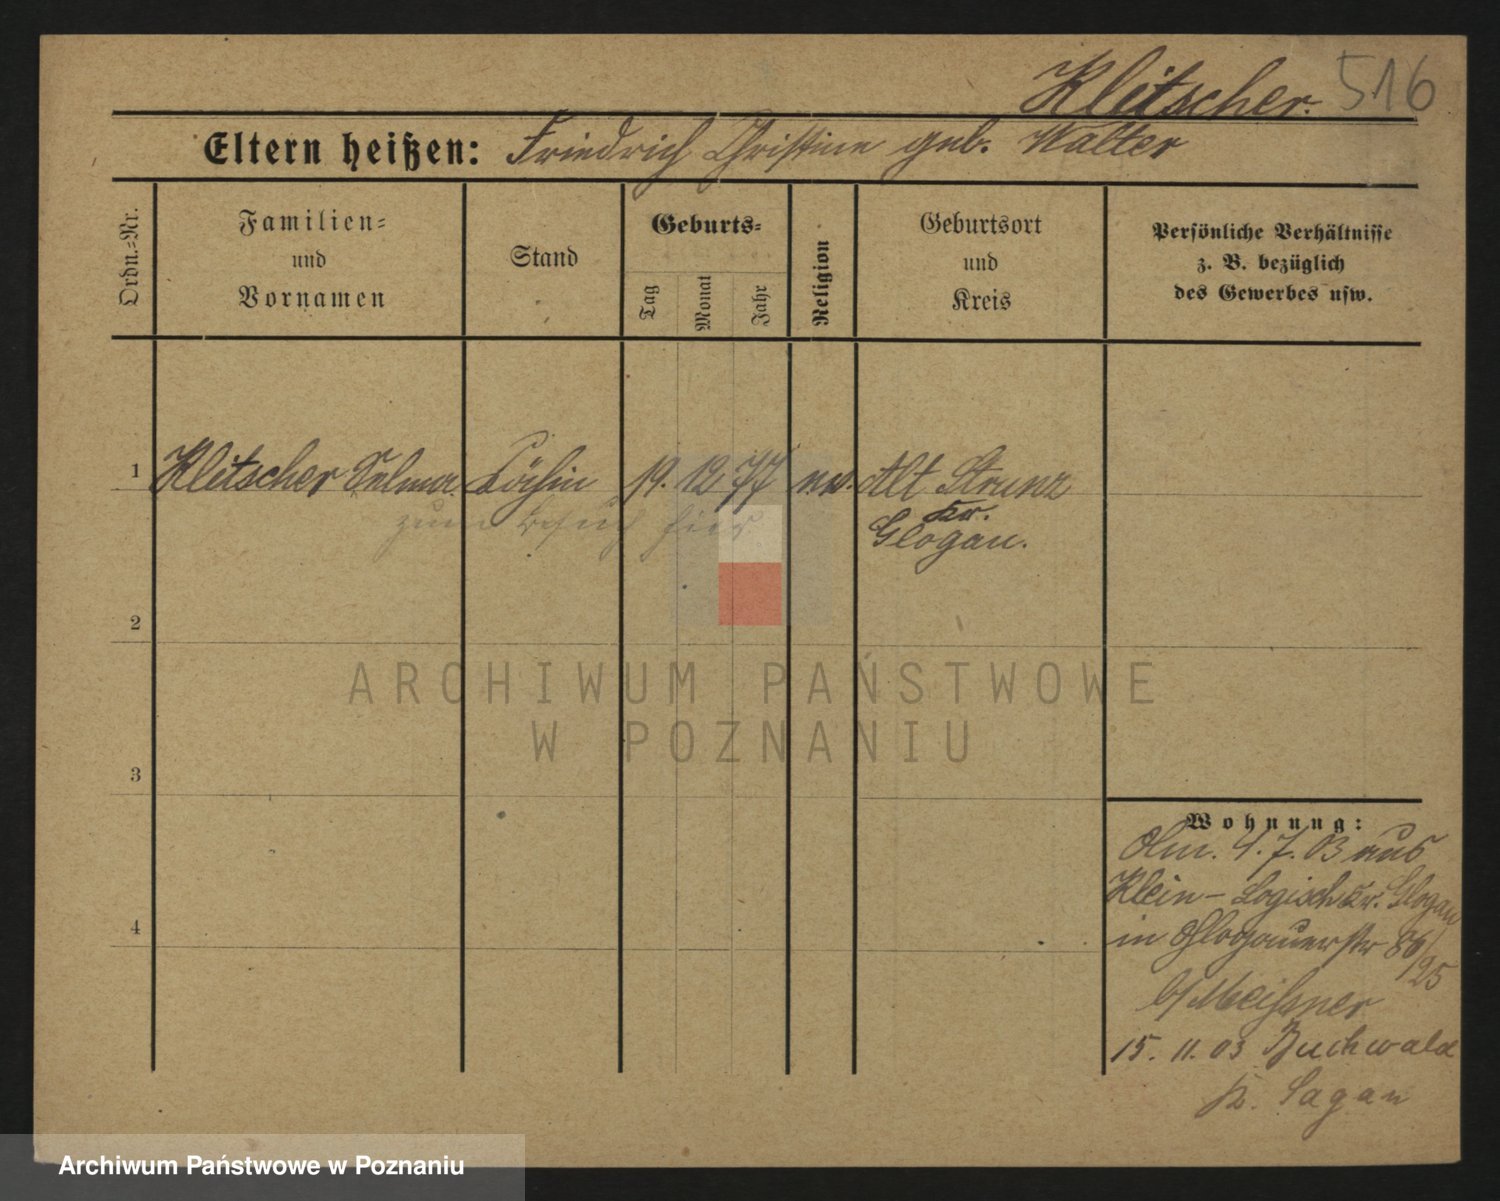 Klitscher. 516
Eltern heißen: Friedrich Christine geb. Walter
Ordn.=Nr.
Familien=
und
Vornamen
Stand
Geburts=
Tag
Monat
Jahr
Religion
Geburtsort
und
Kreis
Persönliche Verhältnisse
z. B. bezüglich
des Gewerbes usw.
1 Klitscher Selma Köchin 19. 12 77 ev. Alt Strunz
Kr.
Glogau.
zum Besuch hier
2
3
4
Wohnung:
4. 7. 03 aus
Klein-Logisch Kr. Glogau
in Glogauerstr 86/
125
b/ Meißner
15. 11. 03 Buchwald
K. Sagan
ARCHIWUM PAŃSTWOWE
W POZNANIU
Archiwum Państwowe w Poznaniu